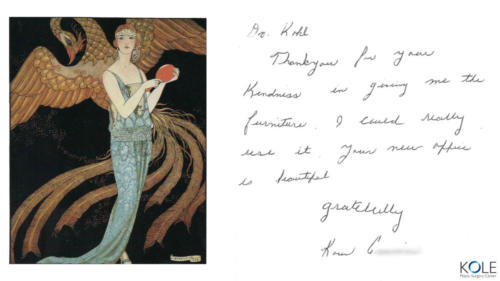 Dr. Kole
Thankyou for your
Kindness in giving me the
furniture. I could really
use it. Your new office
is beautiful
gratefully
KOLE
Plastic Surgery Center